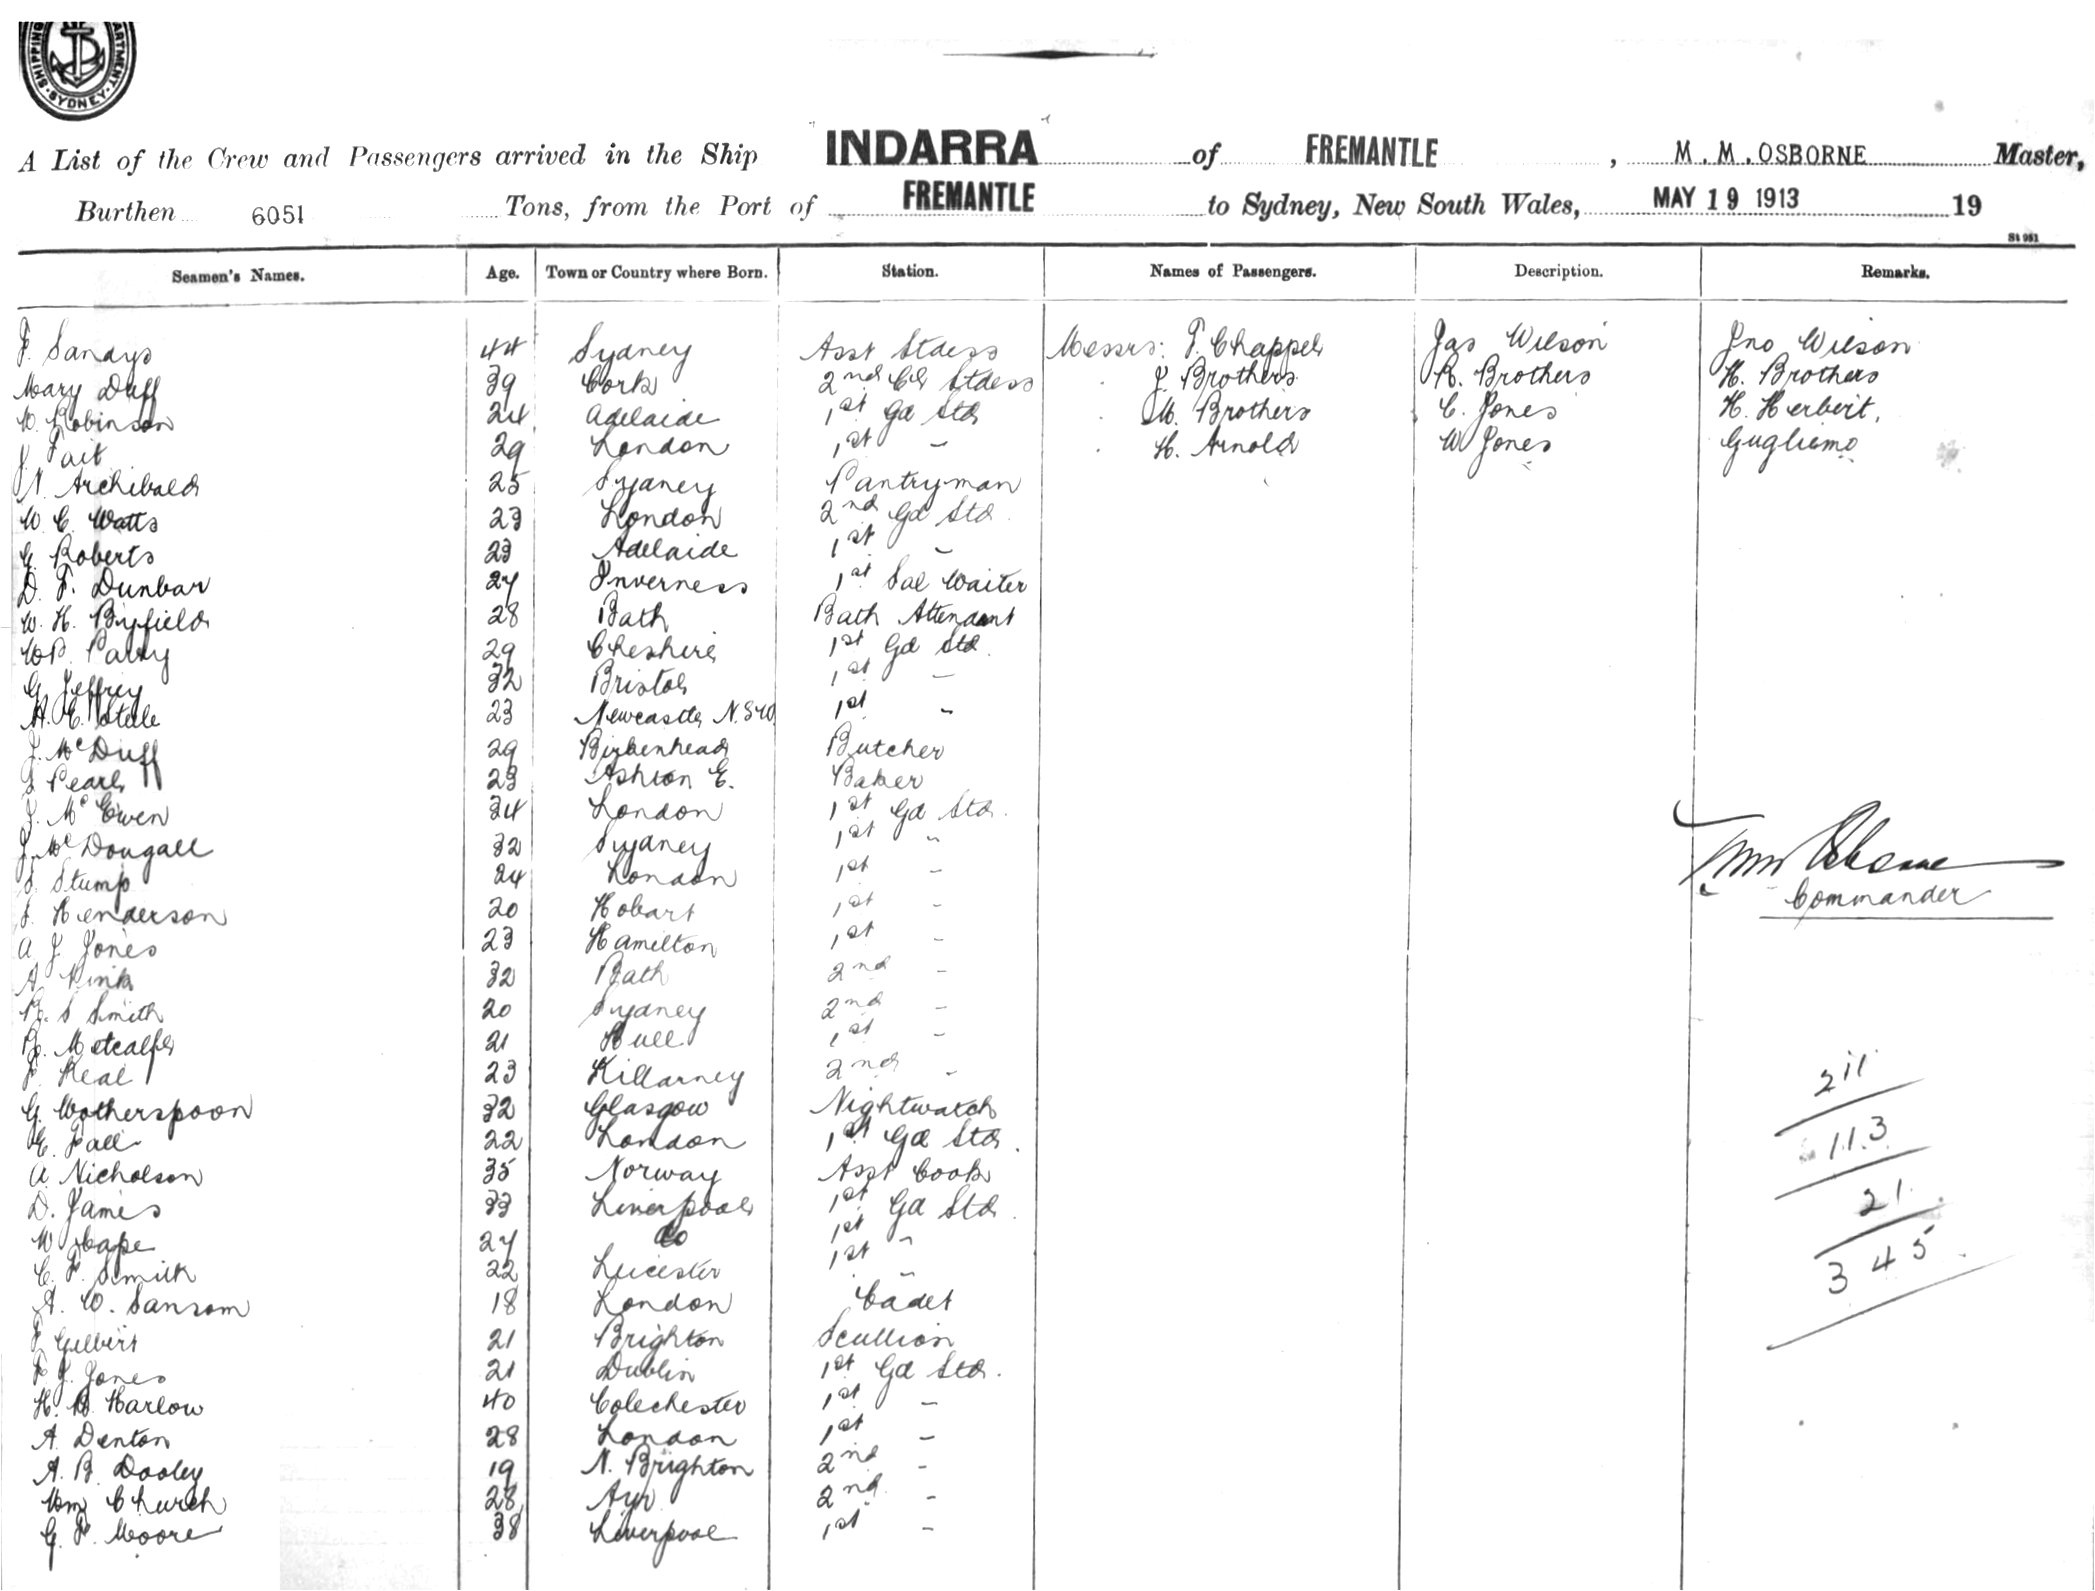 SHIPPING DEPARTMENT. SYDNEY.
A List of the Crew and Passengers arrived in the Ship INDARRA of FREMANTLE, M. M. OSBORNE Master,
Burthen 6051 Tons, from the Port of FREMANTLE to Sydney, New South Wales, MAY 19 1913 19
St 981
Seamen's Names. Age. Town or Country where Born. Station. Names of Passengers. Description. Remarks.
F. Sandys 44 Sydney Asst Stdess Messrs: T. Chappel Jas Wilson Jno Wilson
Mary Duff 39 Cork 2nd Cl Stdess J. Brothers R. Brothers H. Brothers
Robinson 24 Adelaide 1st Gd Std M. Brothers C. Jones H. Herbert.
J. Tait 29 London 1st " H. Arnold W Jones Gugliemo
N. Archibald 25 Sydney Pantryman
W. C. Watts 23 London 2nd Gd Std.
G. Roberts 23 Adelaide 1st "
D. F. Dunbar 27 Inverness 1st Sal Waiter
W. H. Byfield 28 Bath Bath Attendant
Parry 29 Cheshire 1st Gd Std.
G. Jeffrey 32 Bristol 1st "
A. E. Steele 23 Newcastle N.SW 1st "
J. McDuff 29 Birkenhead Butcher
Pearl 23 Ashton E. Baker
J. McEwen 34 London 1st Gd Std.
J. McDougall 32 Sydney 1st "
S. Stump 24 London 1st "
Henderson 20 Hobart 1st "
A J Jones 23 Hamilton 1st "
A. Kink 32 Bath 2nd "
R. S Smith 20 Sydney 2nd "
R. Metcalfe 21 Hull 1st "
F. Real 23 Killarney 2nd "
G. Wotherspoon 32 Glasgow Nightwatch
E. Fall 22 London 1st Gd Std.
A. Nicholson 35 Norway Asst Cook
D. James 33 Liverpool 1st Gd Std.
W Cape 27 Do 1st "
C. F. Smith 22 Leicester 1st "
A. W. Sansom 18 London Cadet
F Gilbert 21 Brighton Scullion
F J. Jones 21 Dublin 1st Gd Std.
H. B. Harlow 40 Colechester 1st "
A. Denton 28 London 1st "
A. B. Dooley 19 N. Brighton 2nd "
Wm Church 28 Ayr 2nd "
G. F. Moore 38 Liverpool 1st "
Osborne
Commander
211
113
21
345